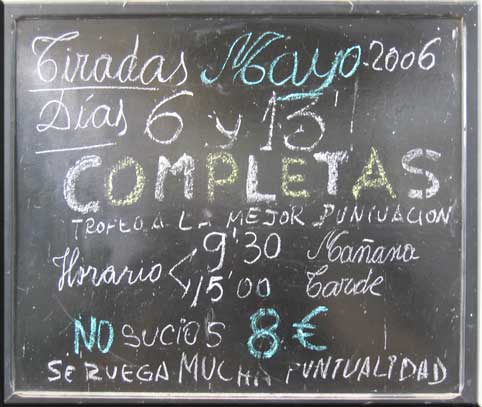 Tiradas Mayo-2006
Días 6 y 13
COMPLETAS
TROFEO A LA MEJOR PUNTUACION
Horario < 9'30 Mañana
15'00 Tarde
NO SUCIOS 8€
SE RUEGA MUCHA PUNTUALIDAD